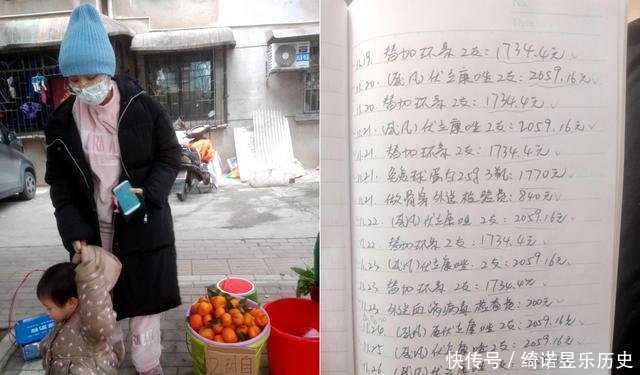 No.
Date
11.19. 替加环素 2支: 1734.4元
11.20. (威凡)伏立康唑 2支: 2059.16元
11.20. 替加环素 2支: 1734.4元
11.21. (威凡)伏立康唑 2支: 2059.16元
11.21. 替加环素 2支: 1734.4元
11.21. 免疫球蛋白 25g 3瓶: 1770元
11.21. 做骨穿外送检验费: 840元
11.22. (威凡)伏立康唑 2支: 2059.16元
11.22. 替加环素 2支: 1734.4元
11.23. (威凡)伏立康唑 2支: 2059.16元
11.23 替加环素 2支: 1734.4元
11.23 外送血 病毒检查费: 200元
11.24. (威凡)伏立康唑 2支: 2059.16元
11.25 (威凡)伏立康唑 2支: 2059.16元
11.26 (威凡)伏立康唑
快传号／绮诺昱乐历史